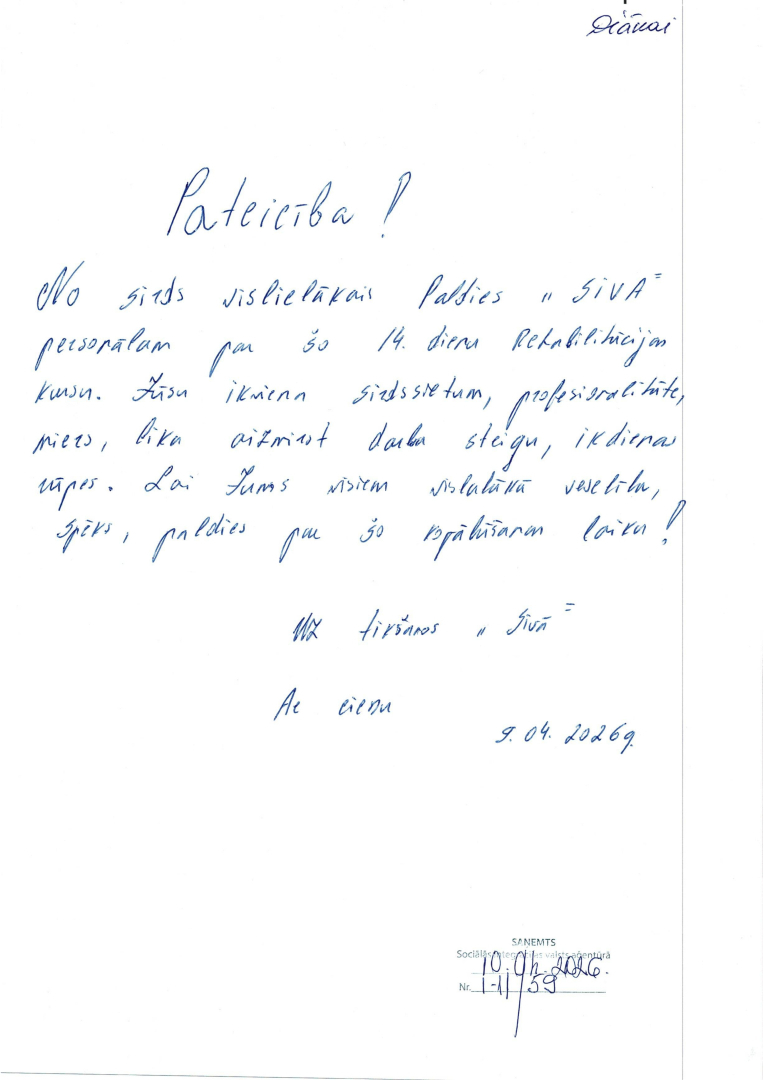 Diānai
Pateicība!
No sirds vislielākais Paldies „SIVA"
personālam par šo 14. dienu Rehabilitācijas
kursu. Jūsu ikviena sirdssiltum, profesionalitāte,
miers, lika aizmirst darba steigu, ikdienas
rūpes. Lai Jums visiem vislabākā veselība,
spēks, paldies par šo kopābūšanas laiku!
Uz tikšanos „Sivā"
Ar cieņu
9. 04. 2026g.
SAŅEMTS
Sociālās integrācijas valsts aģentūrā
10.04.2026.
Nr. 1-11/59